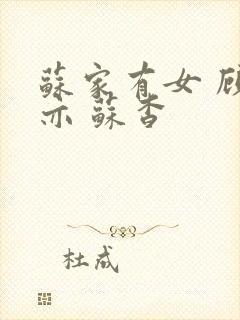 蘇家有女 顾
亦 蘇杳
杜成